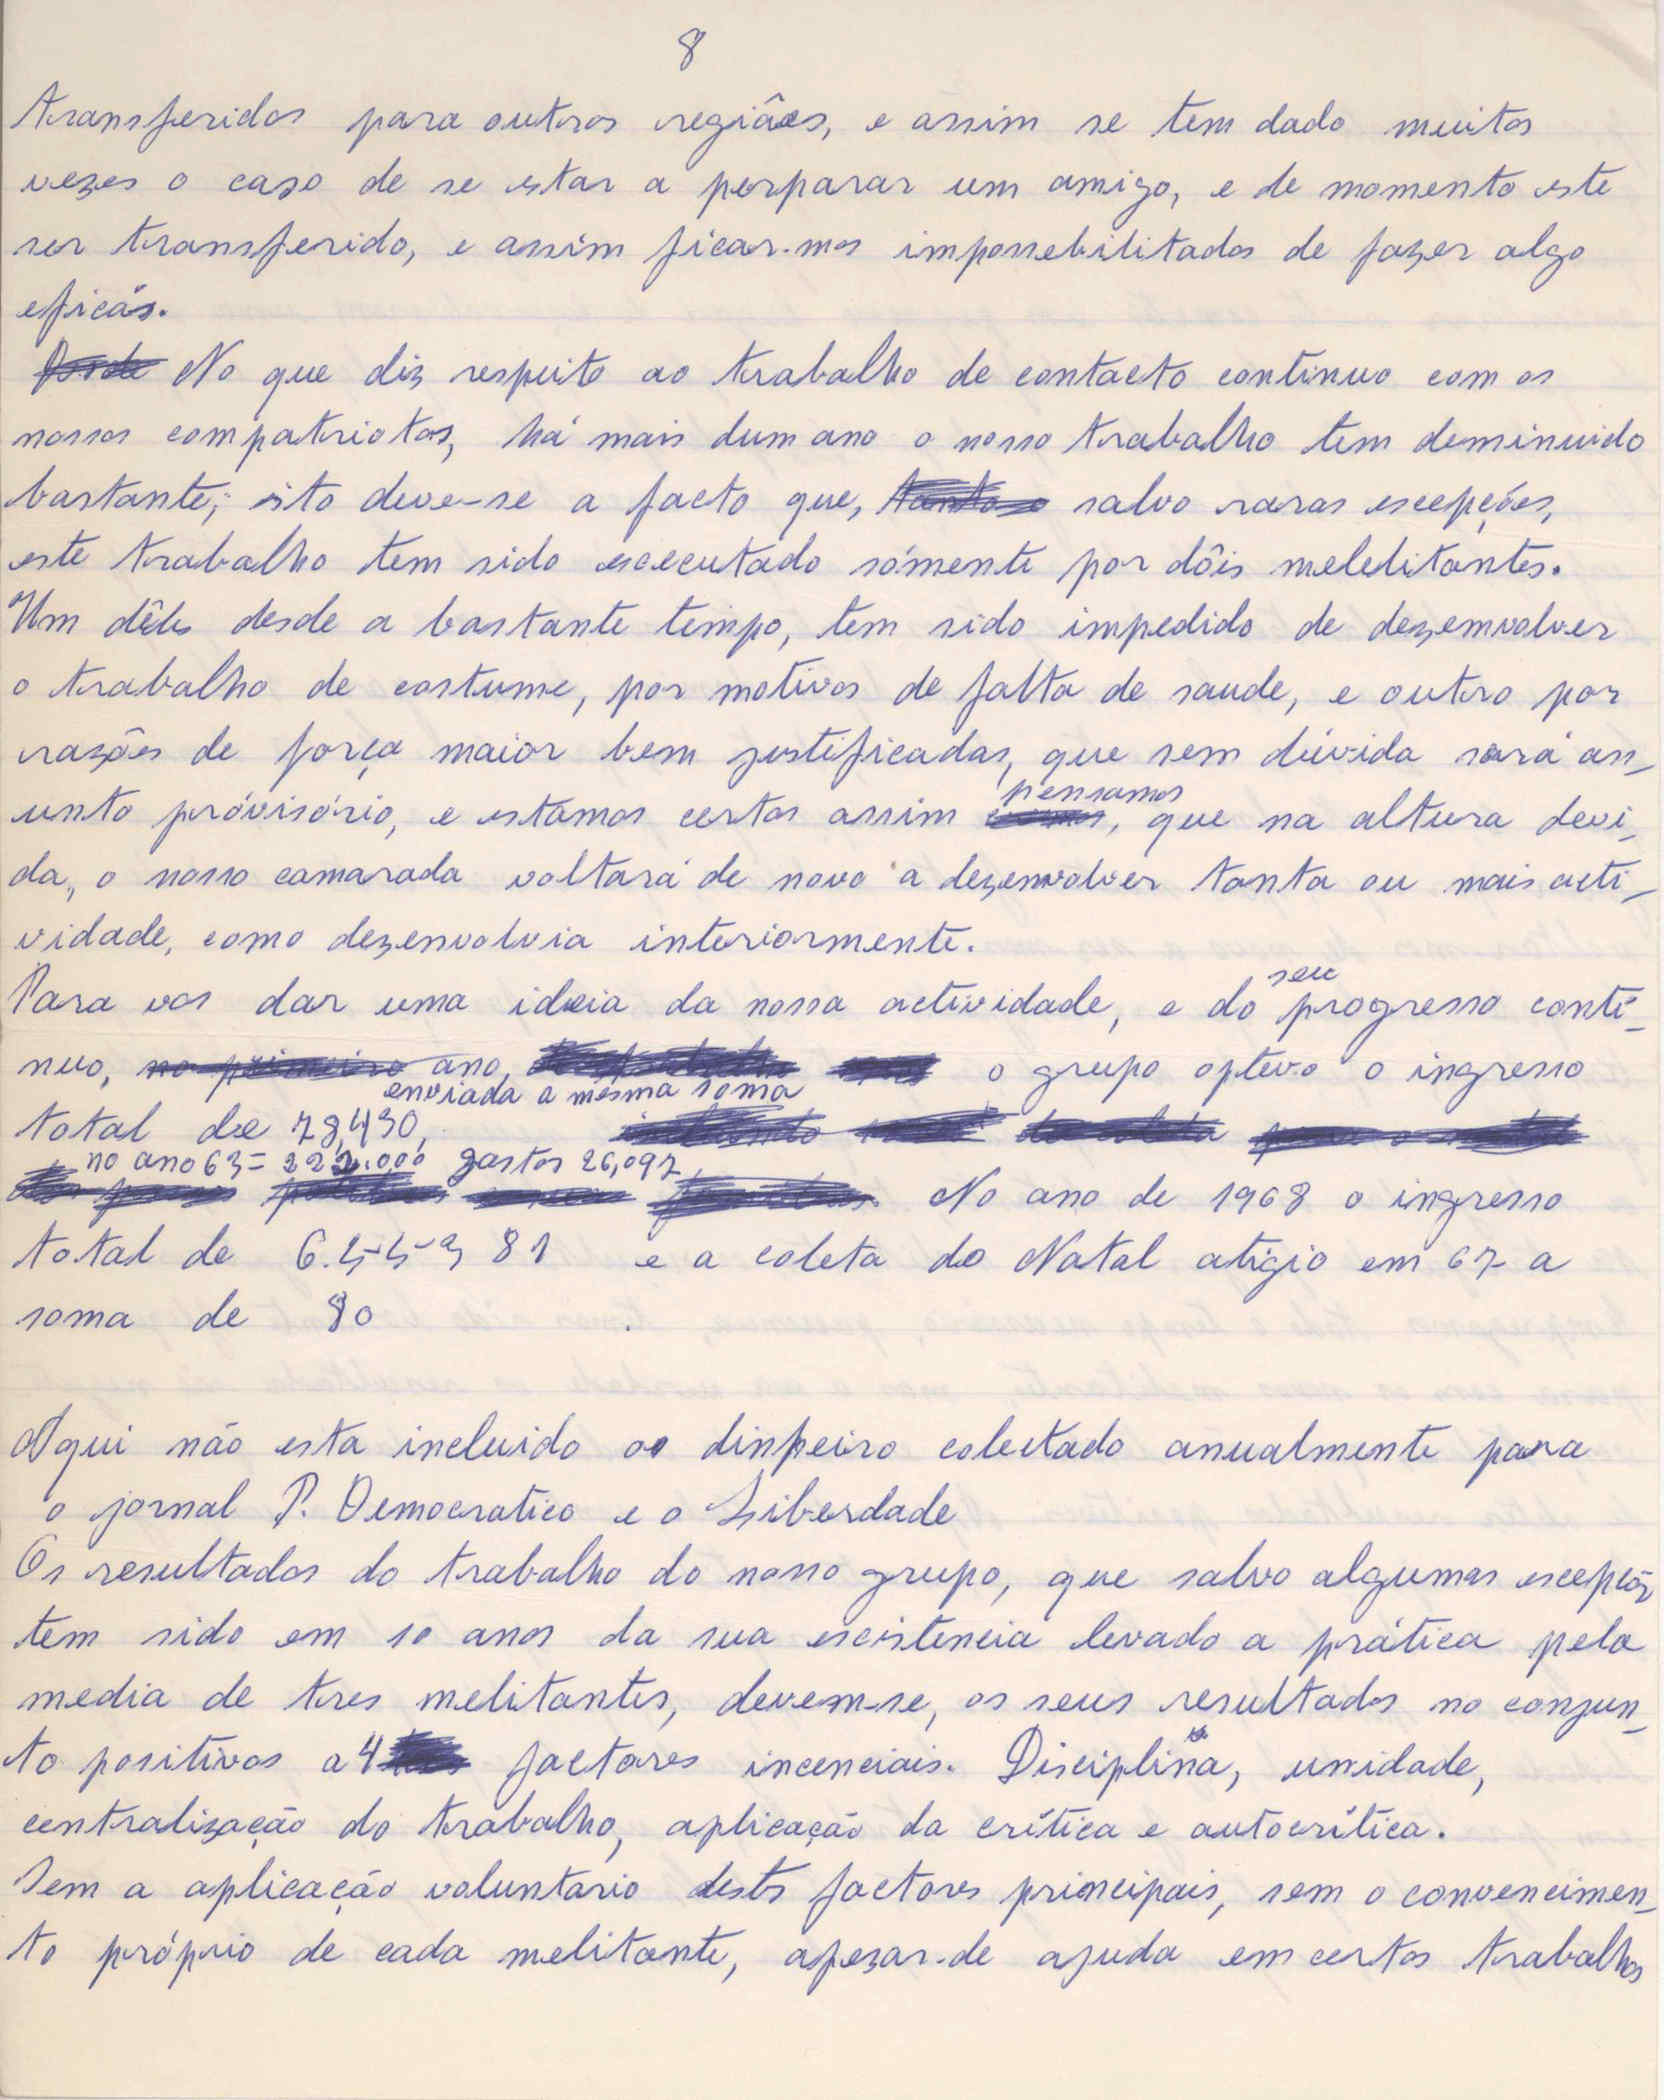 8
transferidos para outros regiões, e assim se tem dado muitas
vezes o caso de se estar a perparar um amigo, e de momento este
ser transferido, e assim ficar-mos impossebilitados de fazer algo
eficás.
No que diz respeito ao trabalho de contacto continuo com os
nossos compatriotas, há mais dum ano o nosso trabalho tem deminuido
bastante; isto deve-se a facto que, salvo raras escepções,
este trabalho tem sido escecutado sómente por dôis melelitantes.
Um dêles desde a bastante tempo, tem sido impedido de dezemvolver
o trabalho de costume, por motivos de falta de saude, e outro por
razões de força maior bem justificadas, que sem dúvida será as-
unto próvisório, e estamos certos assim pensamos, que na altura devi-
da, o nosso camarada voltará de novo a dezenvolver tanta ou mais acti-
vidade, como dezenvolvia interiormente.
Para vos dar uma ideia da nossa actividade, e do seu progresso conti-
nuo, no primeiro ano, o grupo optevo o ingresso
total de 78,430, enviada a mesma soma
no ano 63 = 222.000 gastos 26,097
No ano de 1968 o ingresso
total de e a coleta do Natal atigio em 67 a
soma de 80
Aqui não esta incluido o dinheiro colectado anualmente para
o jornal P. Democratico e o Liberdade
Os resultados do trabalho do nosso grupo, que salvo algumas escepçõs
tem sido em 10 anos da sua escistencia levado a prática pela
media de tres melitantes, devem-se, os seus resultados no conjun-
to positivos a 4 factores incenciais. Disciplina, unidade,
centralização do trabalho, aplicação da crítica e autocrítica.
Sem a aplicação voluntario destes factores principais, sem o convencimen-
to próprio de cada melitante, apezar-de ajuda em certos trabalhos